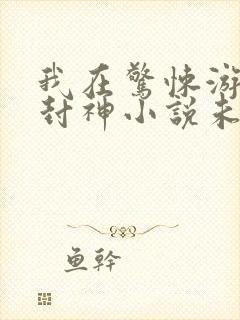 我在驚悚游
封神小説未
鱼幹